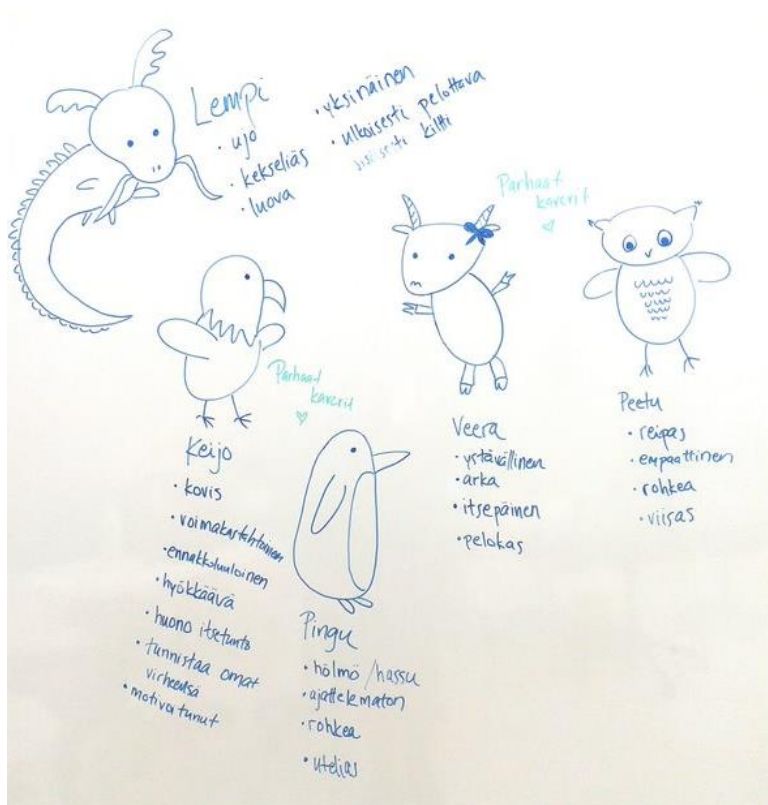 Lempi
• ujo
• kekseliäs
• luova
• yksinäinen
• ulkoisesti pelottava
sisäisesti kiltti
Parhaat
kaverit
Keijo
• kovis
• voimakastahtoinen
• ennakkoluuloinen
• hyökkäävä
• huono itsetunto
• tunnistaa omat
virheensä
• motivoitunut
Parhaat
kaverit
Pingu
• hölmö/hassu
• ajattelematon
• rohkea
• utelias
Veera
• ystävällinen
• arka
• itsepäinen
• pelokas
Peetu
• reipas
• empaattinen
• rohkea
• viisas